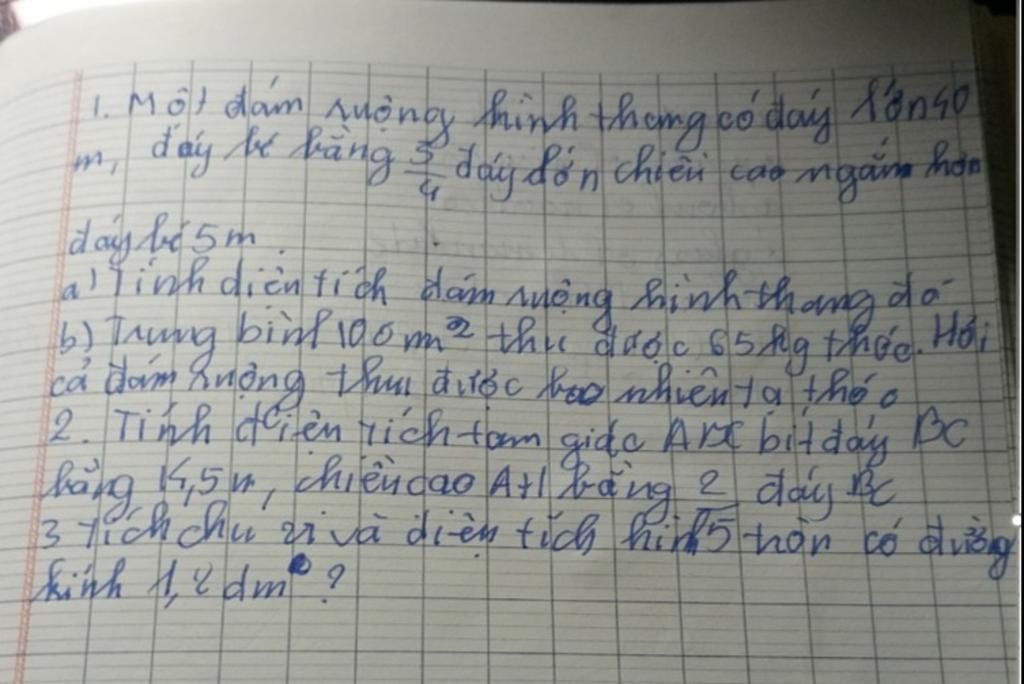 1. Một đám ruộng hình thang có đáy lớn 40
m, đáy bé bằng 3/4 đáy lớn chiều cao ngắn hơn
đáy bé 5m.
a) Tính diện tích đám ruộng hình thang đó
b) Trung bình 100 m² thu được 65 kg thóc. Hỏi
cả đám ruộng thu được bao nhiên tạ thóc
2. Tính diện tích tam giác ABC bit đáy BC
bằng ,5m, chiều cao AH bằng 2/5 đáy BC
3 tích chu vi và diện tích hình tròn có đường
kính dm ?